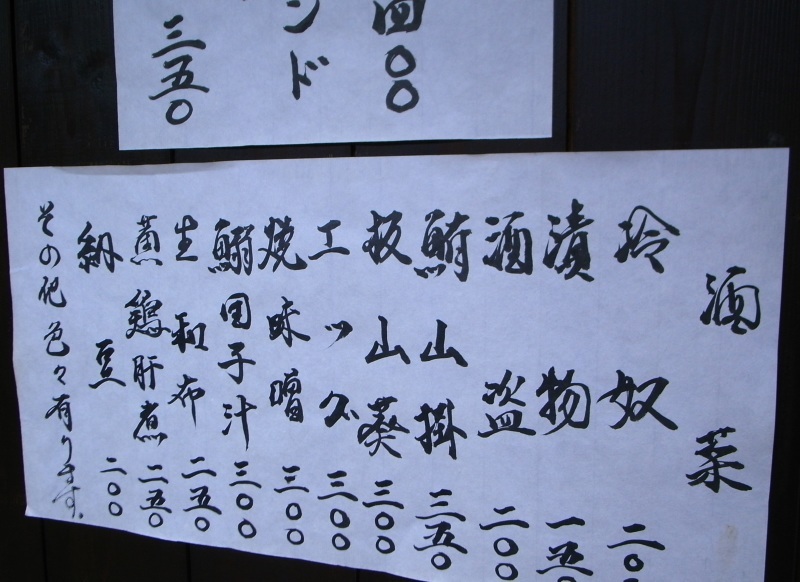 四〇〇
ンド
三五〇
酒菜
冷奴 二〇
漬物 一五〇
酒盗 二〇〇
鮪山掛 三五〇
板山葵 三〇〇
エッグ 三〇〇
焼味噌 三〇〇
鰯団子汁 三〇〇
生和布 二五〇
鶏肝煮 二五〇
納豆 二〇〇
その他色々有ります。